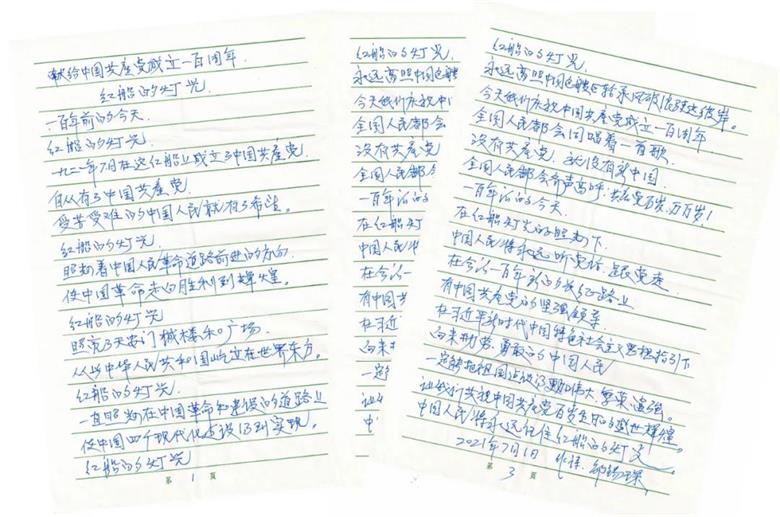 献给中国共产党成立一百周年
红船的灯光
一百年前的今天
红船的灯光
一九二一年7月在这红船上成立了中国共产党
自从有了中国共产党
受苦受难的中国人民就有了希望。
红船的灯光
照耀着中国人民革命道路前进的方向
使中国革命走向胜利到辉煌。
红船的灯光
照亮了天安门城楼和广场
从此中华人民共和国屹立在世界东方。
红船的灯光
一直照耀在中国革命和建设的道路上
使中国四个现代化建设得到实现
红船的灯光
第 1 页
红船的灯光
永远高照中国
今天我们庆祝中
全国人民都会
没有共产党
全国人民都会
一百年后的
在红船灯
中国人民将
在今后一
有中国共
在习近
向来
一定
让我
中
第
红船的灯光
永远高照中国
今天我们庆祝中国共产党成立一百周年
全国人民都会同唱着一首歌
没有共产党 就没有新中国
全国人民都会齐声高呼 共产党万岁,万万岁!
一百年后的今天
在红船灯光的照耀下
中国人民将永远听党话,跟党走
在今后一百年新的长征路上
有中国共产党的坚强领导
在习近平新时代中国特色社会主义思想指引下
向来勤劳勇敢的中国人民
一定能把祖国建设得更加伟大、繁荣、富强。
让我们共祝中国共产党百岁生日的盛世辉煌。
中国人民将永远记住红船的灯光
2021年7月1日
第 3 页